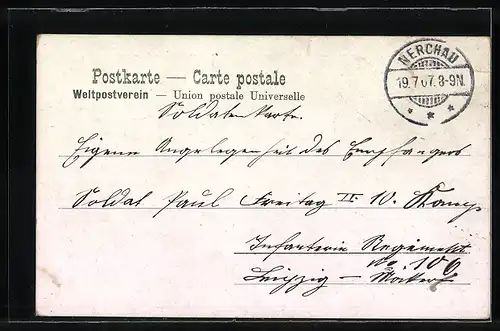 NERCHAU
19.7.07. 8-9N.
Postkarte — Carte postale
Weltpostverein — Union postale Universelle
Soldaten Karte.
Eigene Angelegenheit des Empfängers
Soldat Paul Freitag II. 10. Komp
Infanterie Regiment
No. 106
Leipzig — Möckern